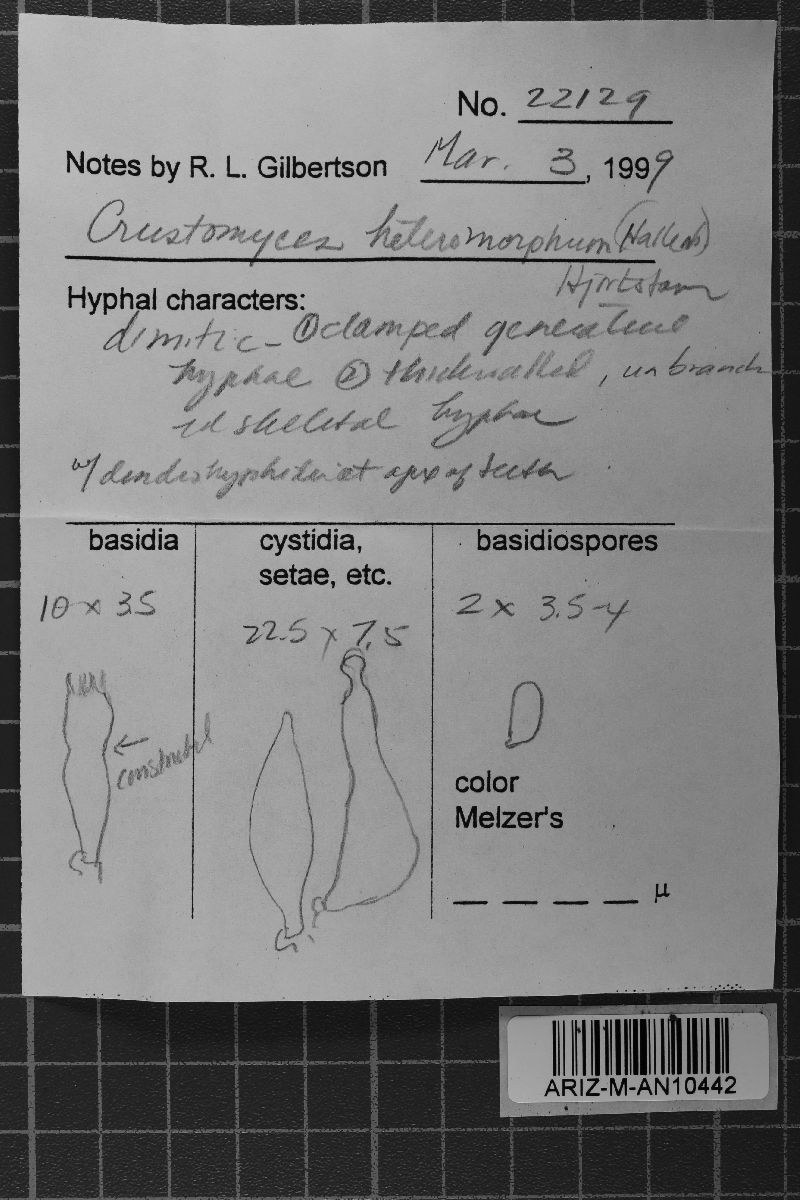 No. 22129
Notes by R. L. Gilbertson Mar. 3, 1999
Crustomyces heteromorphum (Hallenb)
Hjortstam
Hyphal characters:
dimitic - ① clamped generative
hyphae ② thickwalled, unbranch
ed skeletal hyphae
w/ dendrohyphidia at apex of teeth
basidia
cystidia,
setae, etc.
basidiospores
10 x 3.5
22.5 x 7.5
2 x 3.5-4
constricted
color
Melzer's
_ _ _ _ μ
ARIZ-M-AN10442